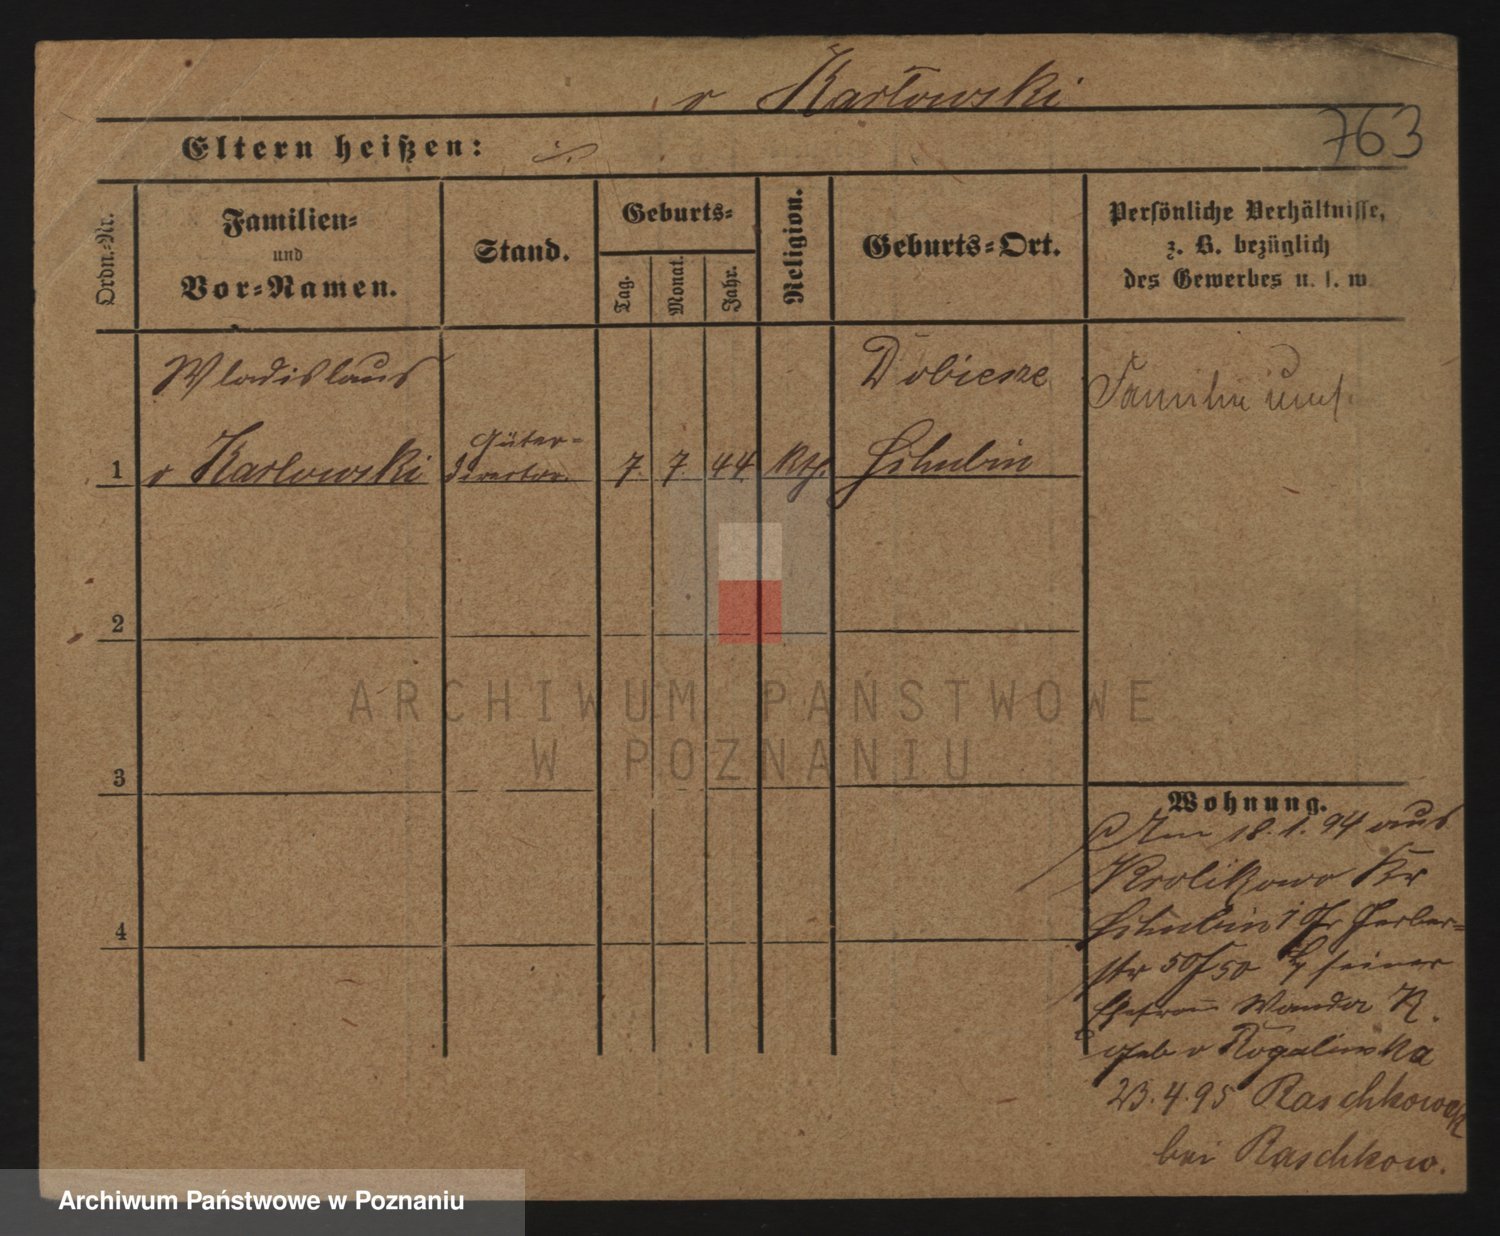 v Karłowski
763
Eltern heißen:
Ordn.-Nr.
Familien-
und
Vor-Namen.
Stand.
Geburts-
Tag.
Monat.
Jahr.
Religion.
Geburts-Ort.
Persönliche Verhältnisse,
z. B. bezüglich
des Gewerbes u. s. w
Wladislaus
Dobiesze
Familie
Güter-
1 v Karlowski
7. 7. 44. Kth. Schubin
2
3
4
Wohnung.
Am 18.1.94 aus
Krolikowo Kr
Schubin Gr Gerber-
str 50 50 seiner
Ehefrau Wanda K.
geb v Rogalinska
23.4.95 Raschkowek
bei Raschkow.
ARCHIWUM PAŃSTWOWE
W POZNANIU
Archiwum Państwowe w Poznaniu